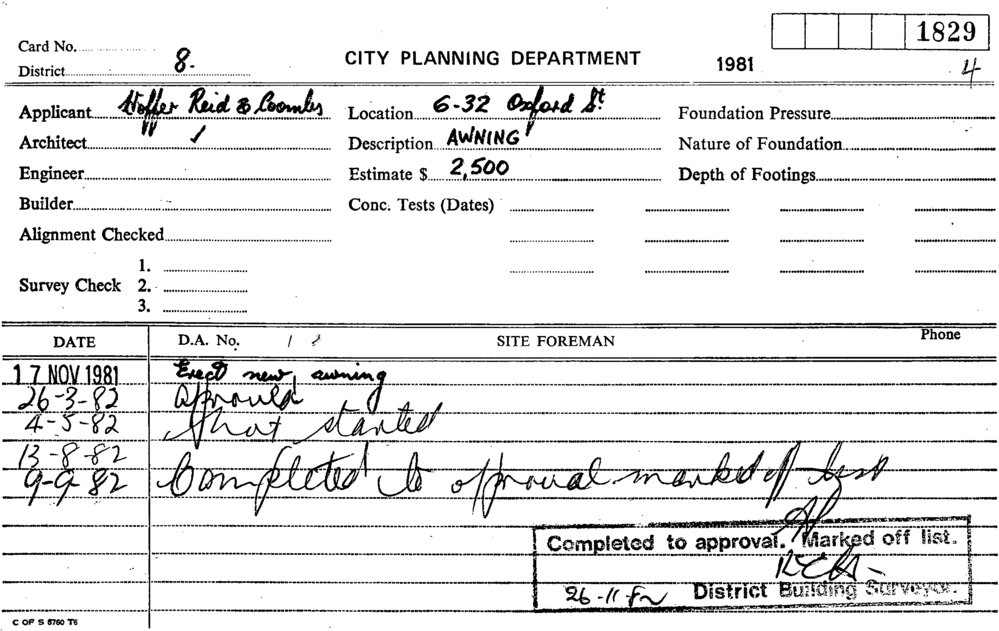 1829
Card No.
District 8. CITY PLANNING DEPARTMENT 1981 4
Applicant Hoffer Reid & Coombs Location 6-32 Oxford St Foundation Pressure
Architect Description AWNING Nature of Foundation
Engineer Estimate $ 2,500 Depth of Footings
Builder Conc. Tests (Dates)
Alignment Checked
1.
Survey Check 2.
3.
DATE D.A. No. SITE FOREMAN Phone
17 NOV 1981 Erect new awning
26-3-82 Approved
4-5-82 Not started
13-8-82
9-9-82 Completed to approval marked off list
Completed to approval. Marked off list.
26-11-82 District Building Surveyor.
C OF S 6760 T6